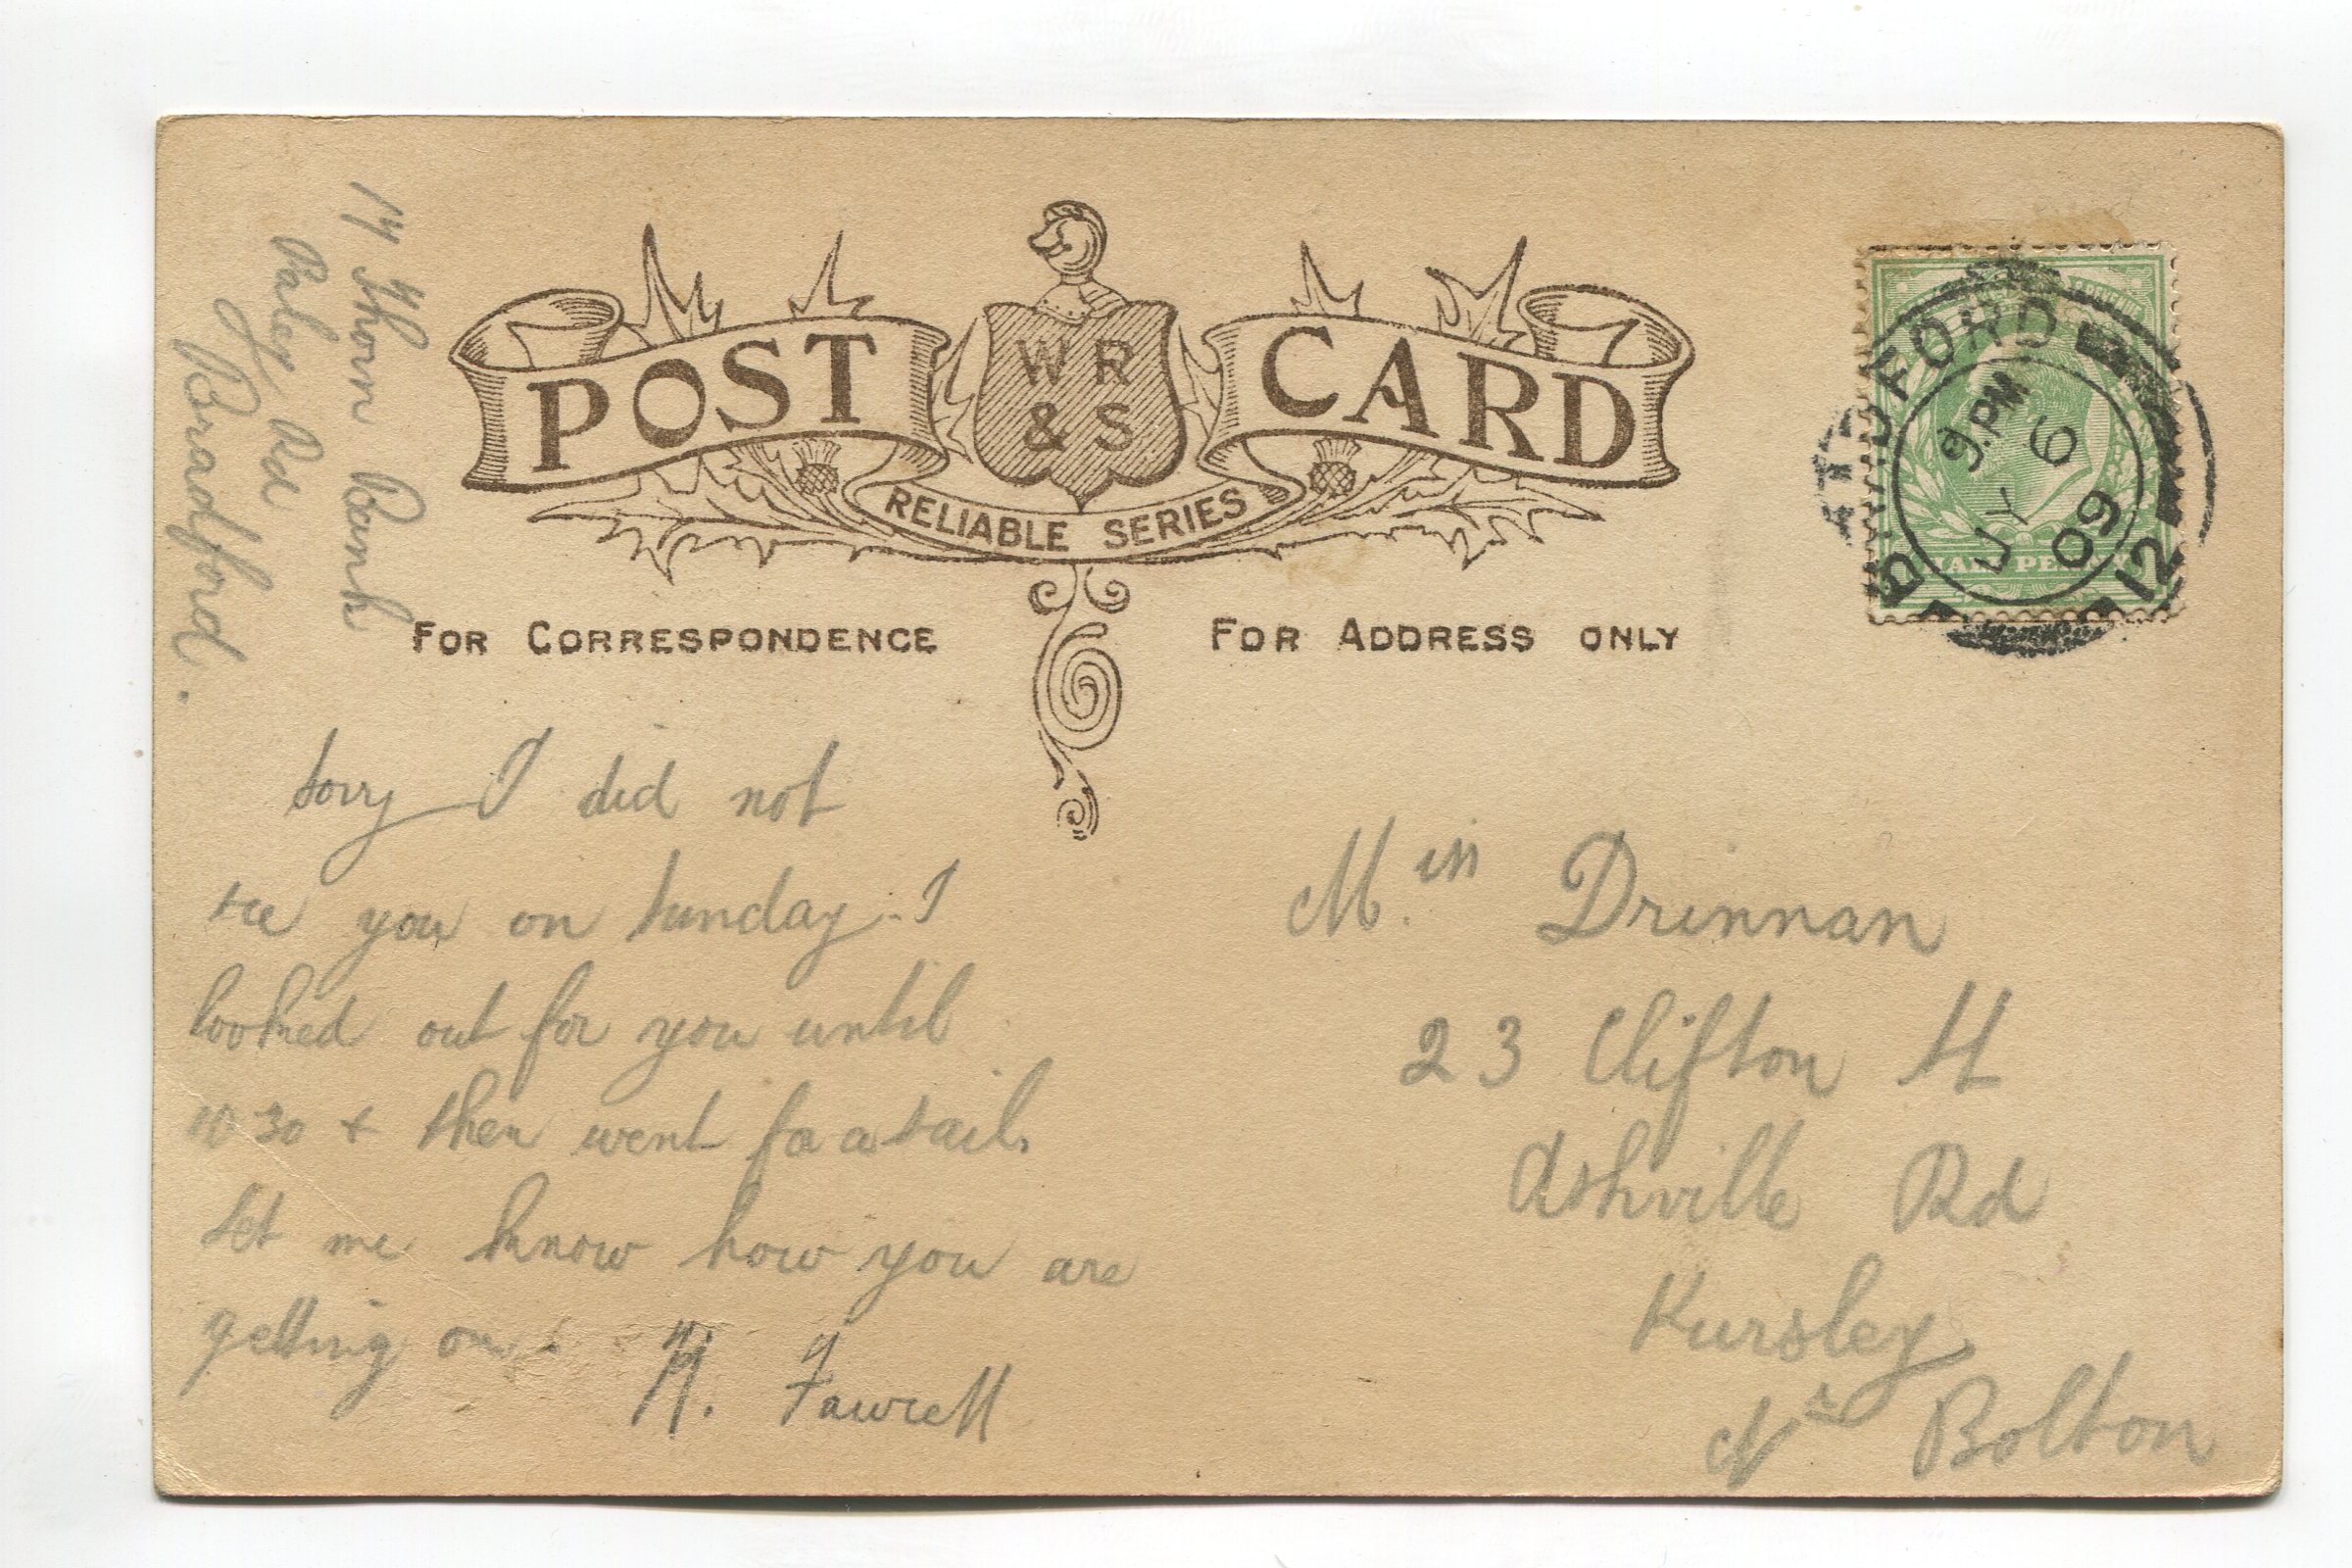 14 Thorn Bank
Paley Rd
Bradford.
POST CARD
WR
& S
RELIABLE SERIES
FOR CORRESPONDENCE
FOR ADDRESS ONLY
BRADFORD
9.PM
JY 6
09
12
HALF PENNY
Sorry I did not
see you on Sunday. I
looked out for you until
10 30 + then went for a sail.
Let me know how you are
getting on.
H. Fawcett
Miss Drinnan
23 Clifton St
Ashville Rd
Kursley
Nr Bolton